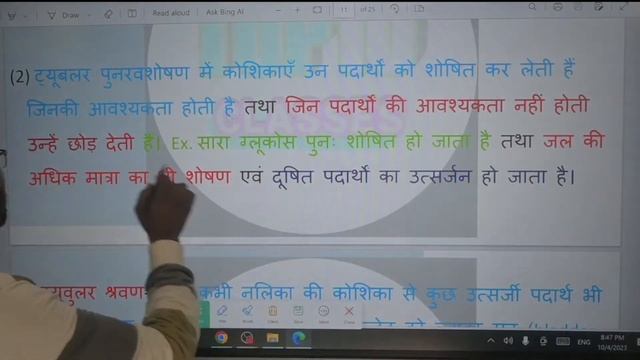 Draw
Read aloud
Ask Bing AI
11 of 25
(2) ट्यूबलर पुनरवशोषण में कोशिकाएँ उन पदार्थो को शोषित कर लेती हैं
जिनकी आवश्यकता होती है तथा जिन पदार्थो की आवश्यकता नहीं होती
उन्हें छोड़ देती है। Ex. सारा ग्लूकोस पुनः शोषित हो जाता है तथा जल की
अधिक मात्रा का शोषण एवं दूषित पदार्थो का उत्सर्जन हो जाता है।
श्रवण कभी नलिका की कोशिका से कुछ उत्सर्जी पदार्थ भी
ENG
8:47 PM
10/4/2023